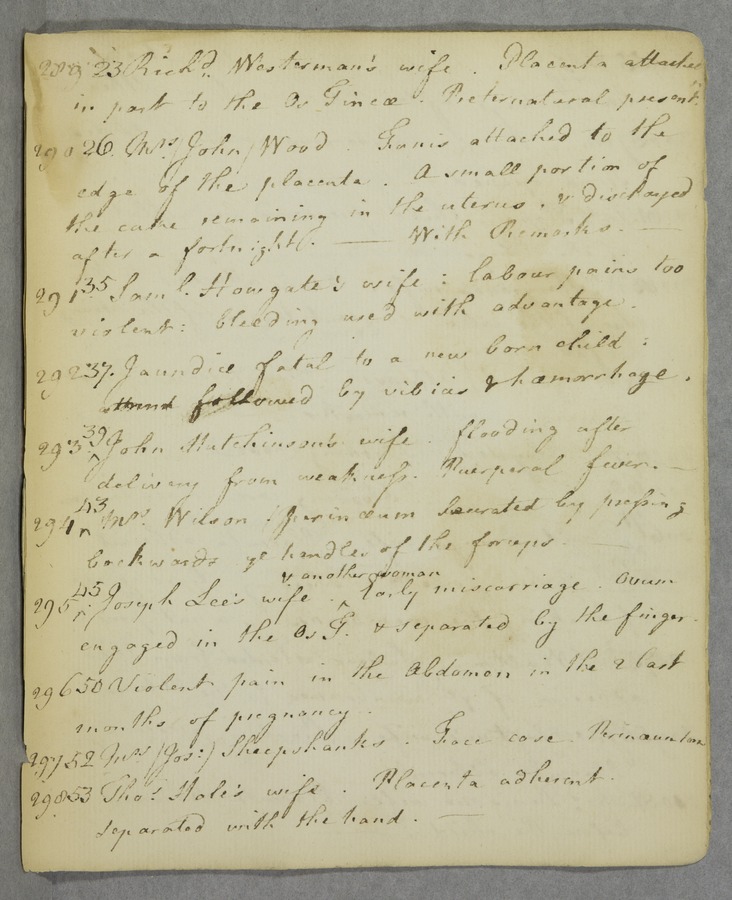 289 23 Richd. Westerman's wife. Placenta attached
in part to the Os Tincæ. Preternatural present.
290 26. Mrs (John) Wood. Funis attached to the
edge of the placenta. A small portion of
the cake remaining in the uterus, & discharged
after a fortnight. — With Remarks. —
291 35 Saml. Howgate's wife: labour pains too
violent: bleeding used with advantage.
292 37. Jaundice fatal to a new born child:
followed by vibias & hæmorrhage.
293 39 John Hutchinson's wife. flooding after
delivery from weakness. Puerperal fever. —
294 43 Mrs. Wilson. perinæum lacerated by pressing
backwards ye handles of the forceps —
& another woman
295 45 Joseph Lee's wife. ^ Early miscarriage. Ovum
engaged in the Os T. & separated by the finger.
296 50 Violent pain in the Abdomen in the 2 last
months of pregnancy.
297 52 Mrs (Jos:) Sheepshanks. Face case. Perinæum torn
298 53 Thos. Hale's wife. Placenta adherent.
separated with the hand. —